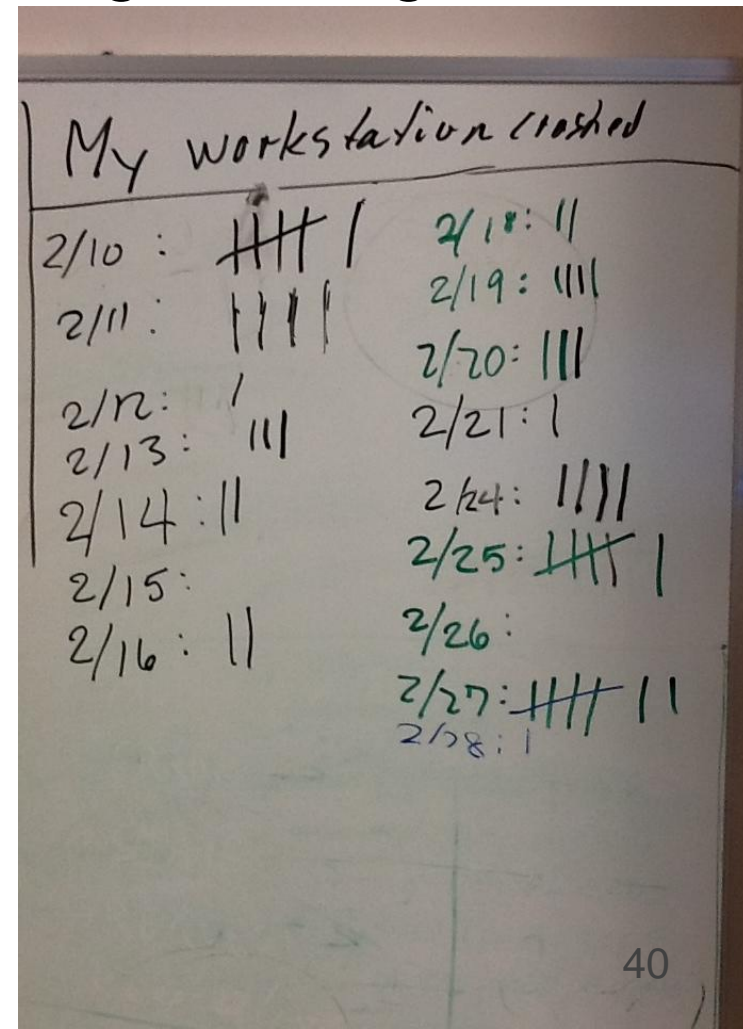 My workstation crashed
2/10 : 卌 |
2/11 : ||||
2/12: |
2/13: |||
2/14: ||
2/15:
2/16: ||
2/18: ||
2/19: ||||
2/20: |||
2/21: |
2/24: ||||
2/25: 卌 |
2/26:
2/27: 卌 ||
2/28: |
40